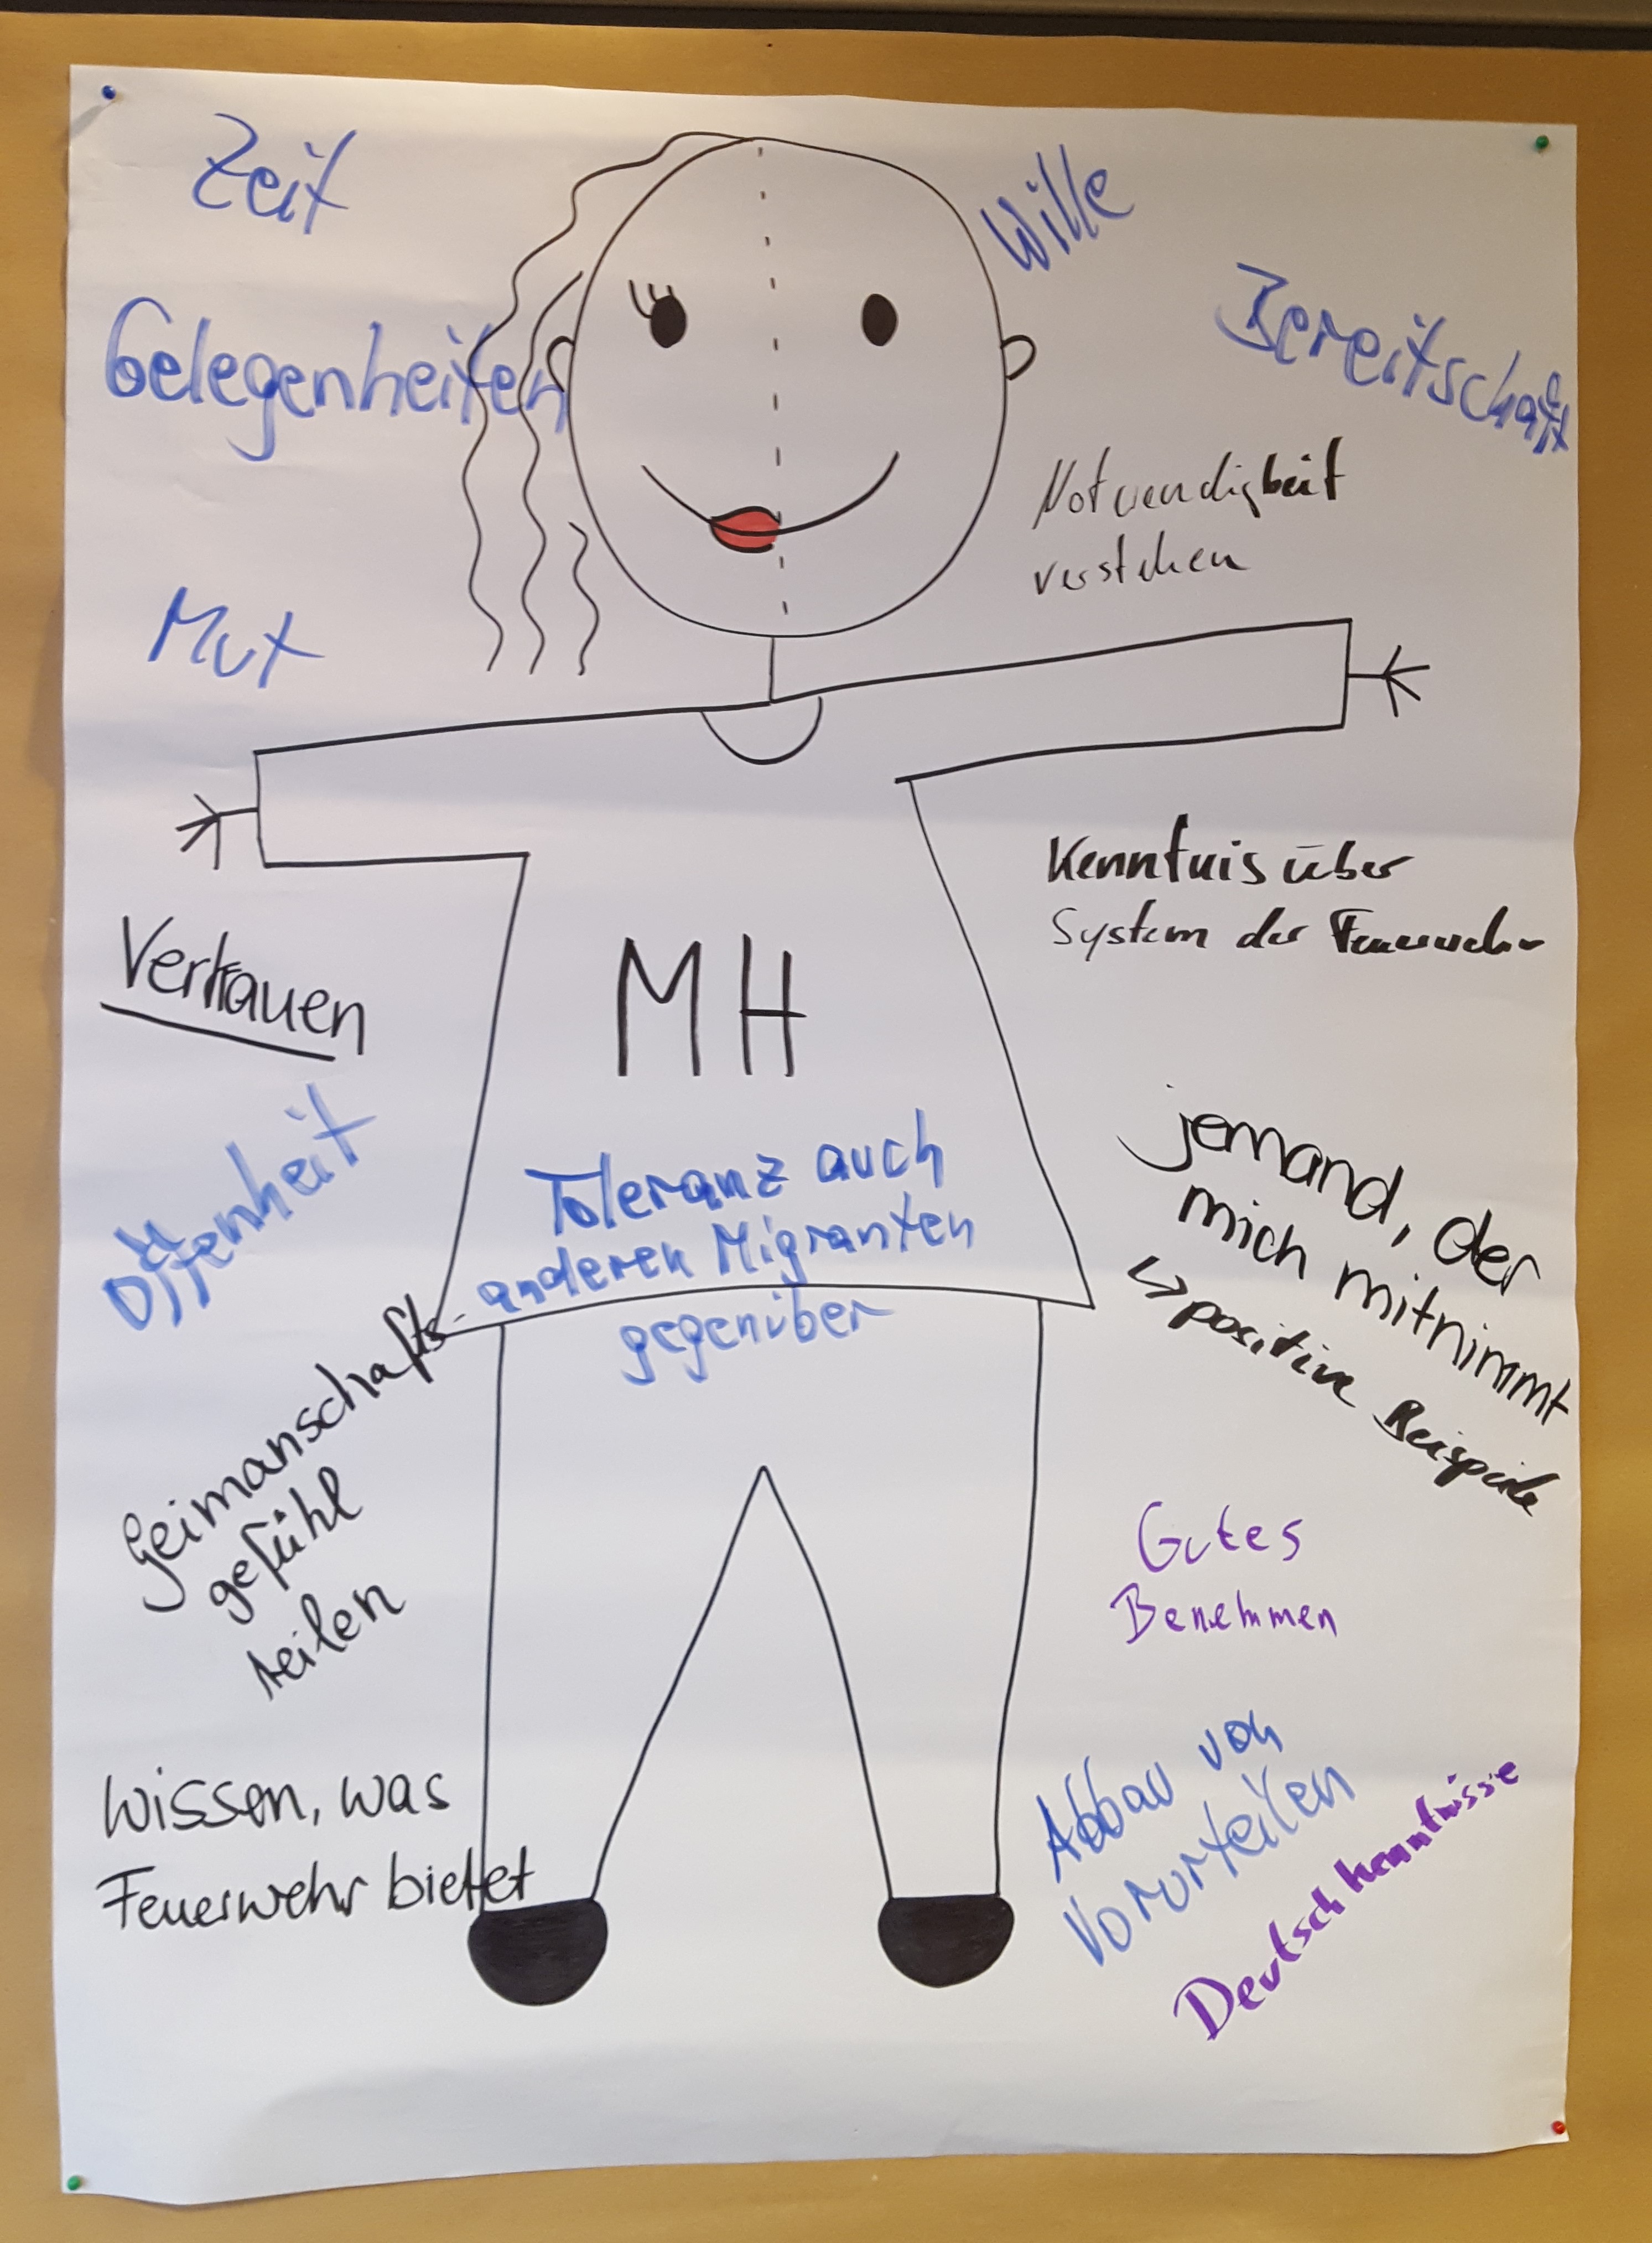 Zeit
Wille
Gelegenheiten
Bereitschaft
Notwendigkeit
verstehen
Mut
Kenntnis über
System der Feuerwehr
Vertrauen
MH
jemand, der
mich mitnimmt
↳ positive Beispiele
Offenheit
Toleranz auch
anderen Migranten
gegenüber
Geimanschafts-
gefühl
teilen
Gutes
Benehmen
Wissen, was
Feuerwehr bietet
Abbau von
Vorurteilen
Deutschkenntnisse